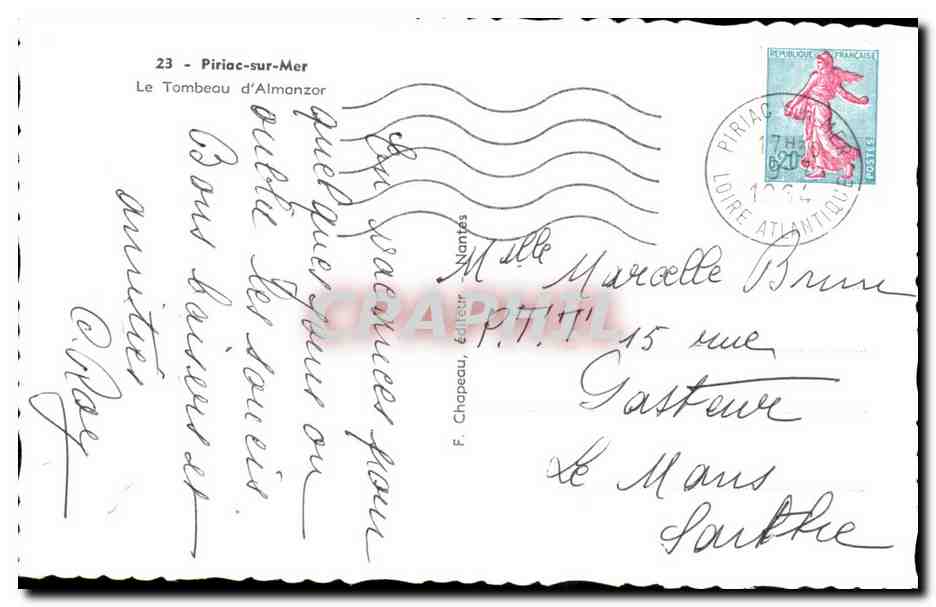 23 - Piriac-sur-Mer
Le Tombeau d'Almanzor
En vacances pour
quelques jours on
oublie les soucis
Bons baisers et
amitiés
F. Chapeau, éditeur - Nantes
REPUBLIQUE FRANÇAISE
0,20
POSTES
PIRIAC SUR MER
17H30
1964
LOIRE ATLANTIQUE
Mlle Marcelle Brun
P.T.T. 15 rue
Pasteur
Le Mans
Sarthe
CRAPHIL